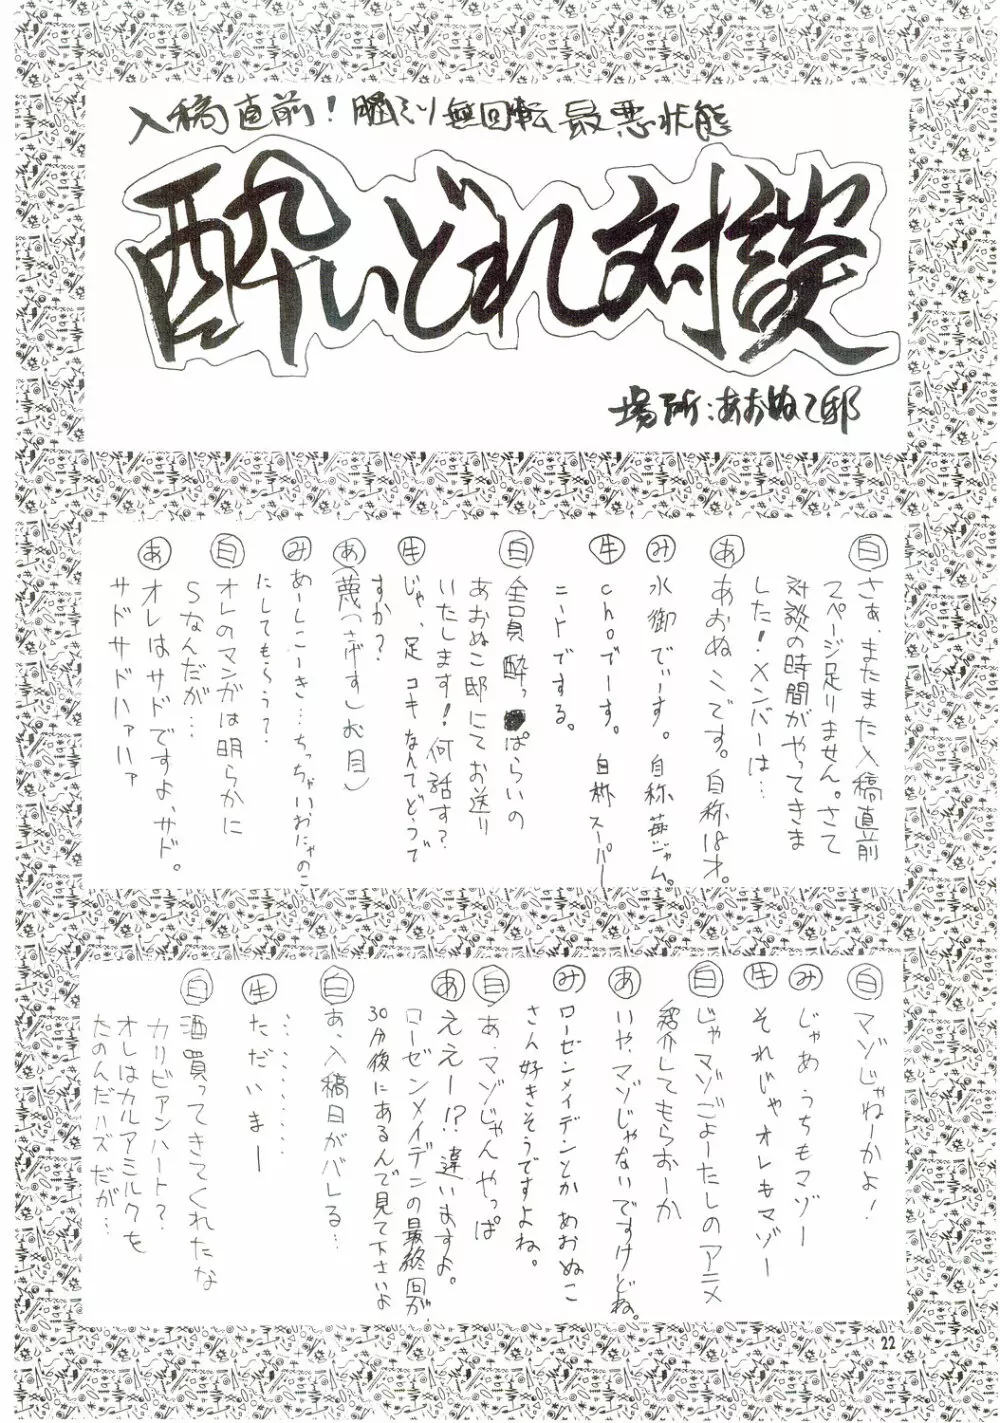 入稿直前！脳ミソ無回転最悪状態
酔いどれ対談
場所：あおぬこ邸
白 さぁ、またまた入稿直前
ページ足りません。さて
対談の時間がやってきま
した！メンバーは…
あ あおぬこです。自称は才。
み 水御でぃーす。自称苺ジャム。
牛 choでーす。自称スーパー
ニートでする。
白 全員酔っぱらいの
あおぬこ邸にてお送り
いたします！何話す？
牛 じゃ、足コキなんてどうで
すか？
あ （蔑（さげす）む目）
み あーしこーき…ちっちゃいおにゃのこ
にしてもらう？
白 オレのマンガは明らかに
Sなんだが…
あ オレはサドですよ、サド。
サドサドハァハァ
白 マゾじゃねーかよ！
み じゃあうちもマゾー
牛 それじゃオレもマゾー
白 じゃマゾごよーたしのアニメ
紹介してもらおーか
あ いや、マゾじゃないですけどね。
み ローゼンメイデンとかあおぬこ
さん好きそうですよね。
白 あ、マゾじゃんやっぱ
あ ええー！？違いますよ。
ローゼンメイデンの最終回が
30分後にあるんで見て下さいよ
白 あ、入稿日がバレる…
…………
牛 ただいまー
白 酒買ってきてくれたな
カリビアンハート？
オレはカルアミルクを
たのんだハズだが…
22